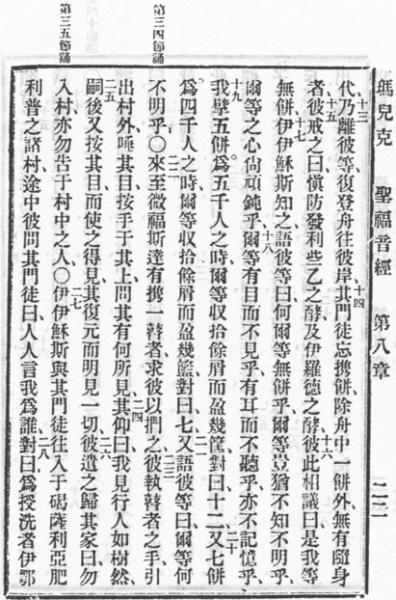 瑪兒克 聖福音經 第八章 二二
十三 十四
代乃離彼等復登舟往彼岸其門徒忘攜餅除舟中一餅外無有隨身
十五 十六
者彼戒之曰愼防發利些乙之酵及伊羅德之酵彼此相議曰是我等
十七
無餅伊伊穌斯知之語彼等曰何爾等無餅乎爾等豈猶不知不明乎
十八
爾等之心尙頑鈍乎爾等有目而不見乎有耳而不聽乎亦不記憶乎
十九 二十
我擘五餅爲五千人之時爾等收拾餘屑而盈幾筐對曰十二又七餅
二一
爲四千人之時爾等收拾餘屑而盈幾籃對曰七又語彼等曰爾等何
第三四節誦
二二 二三
不明乎○來至微福斯達有攜一瞽者求彼以捫之彼執瞽者之手引
二四
出村外唾其目按手于其上問其有何所見其仰曰我見行人如樹然
二五 二六
嗣後又按其目而使之得見其復元而明見一切彼遣之歸其家曰勿
第三五節誦
二七
入村亦勿吿于村中之人○伊伊穌斯與其門徒往入于碣薩利亞肥
二八
利普之諸村途中彼問其門徒曰人人言我爲誰對曰爲授洗者伊鄂